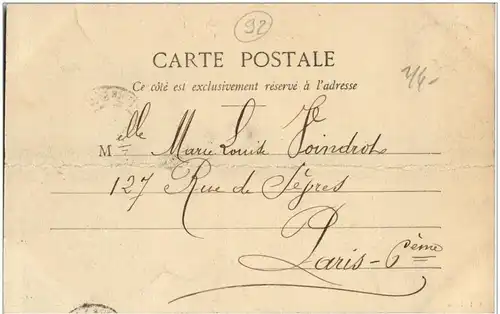 92
CARTE POSTALE
Ce côté est exclusivement réservé à l'adresse
Melle Marie Louise Voindrot
127 Rue de Sèvres
Paris - 6ème